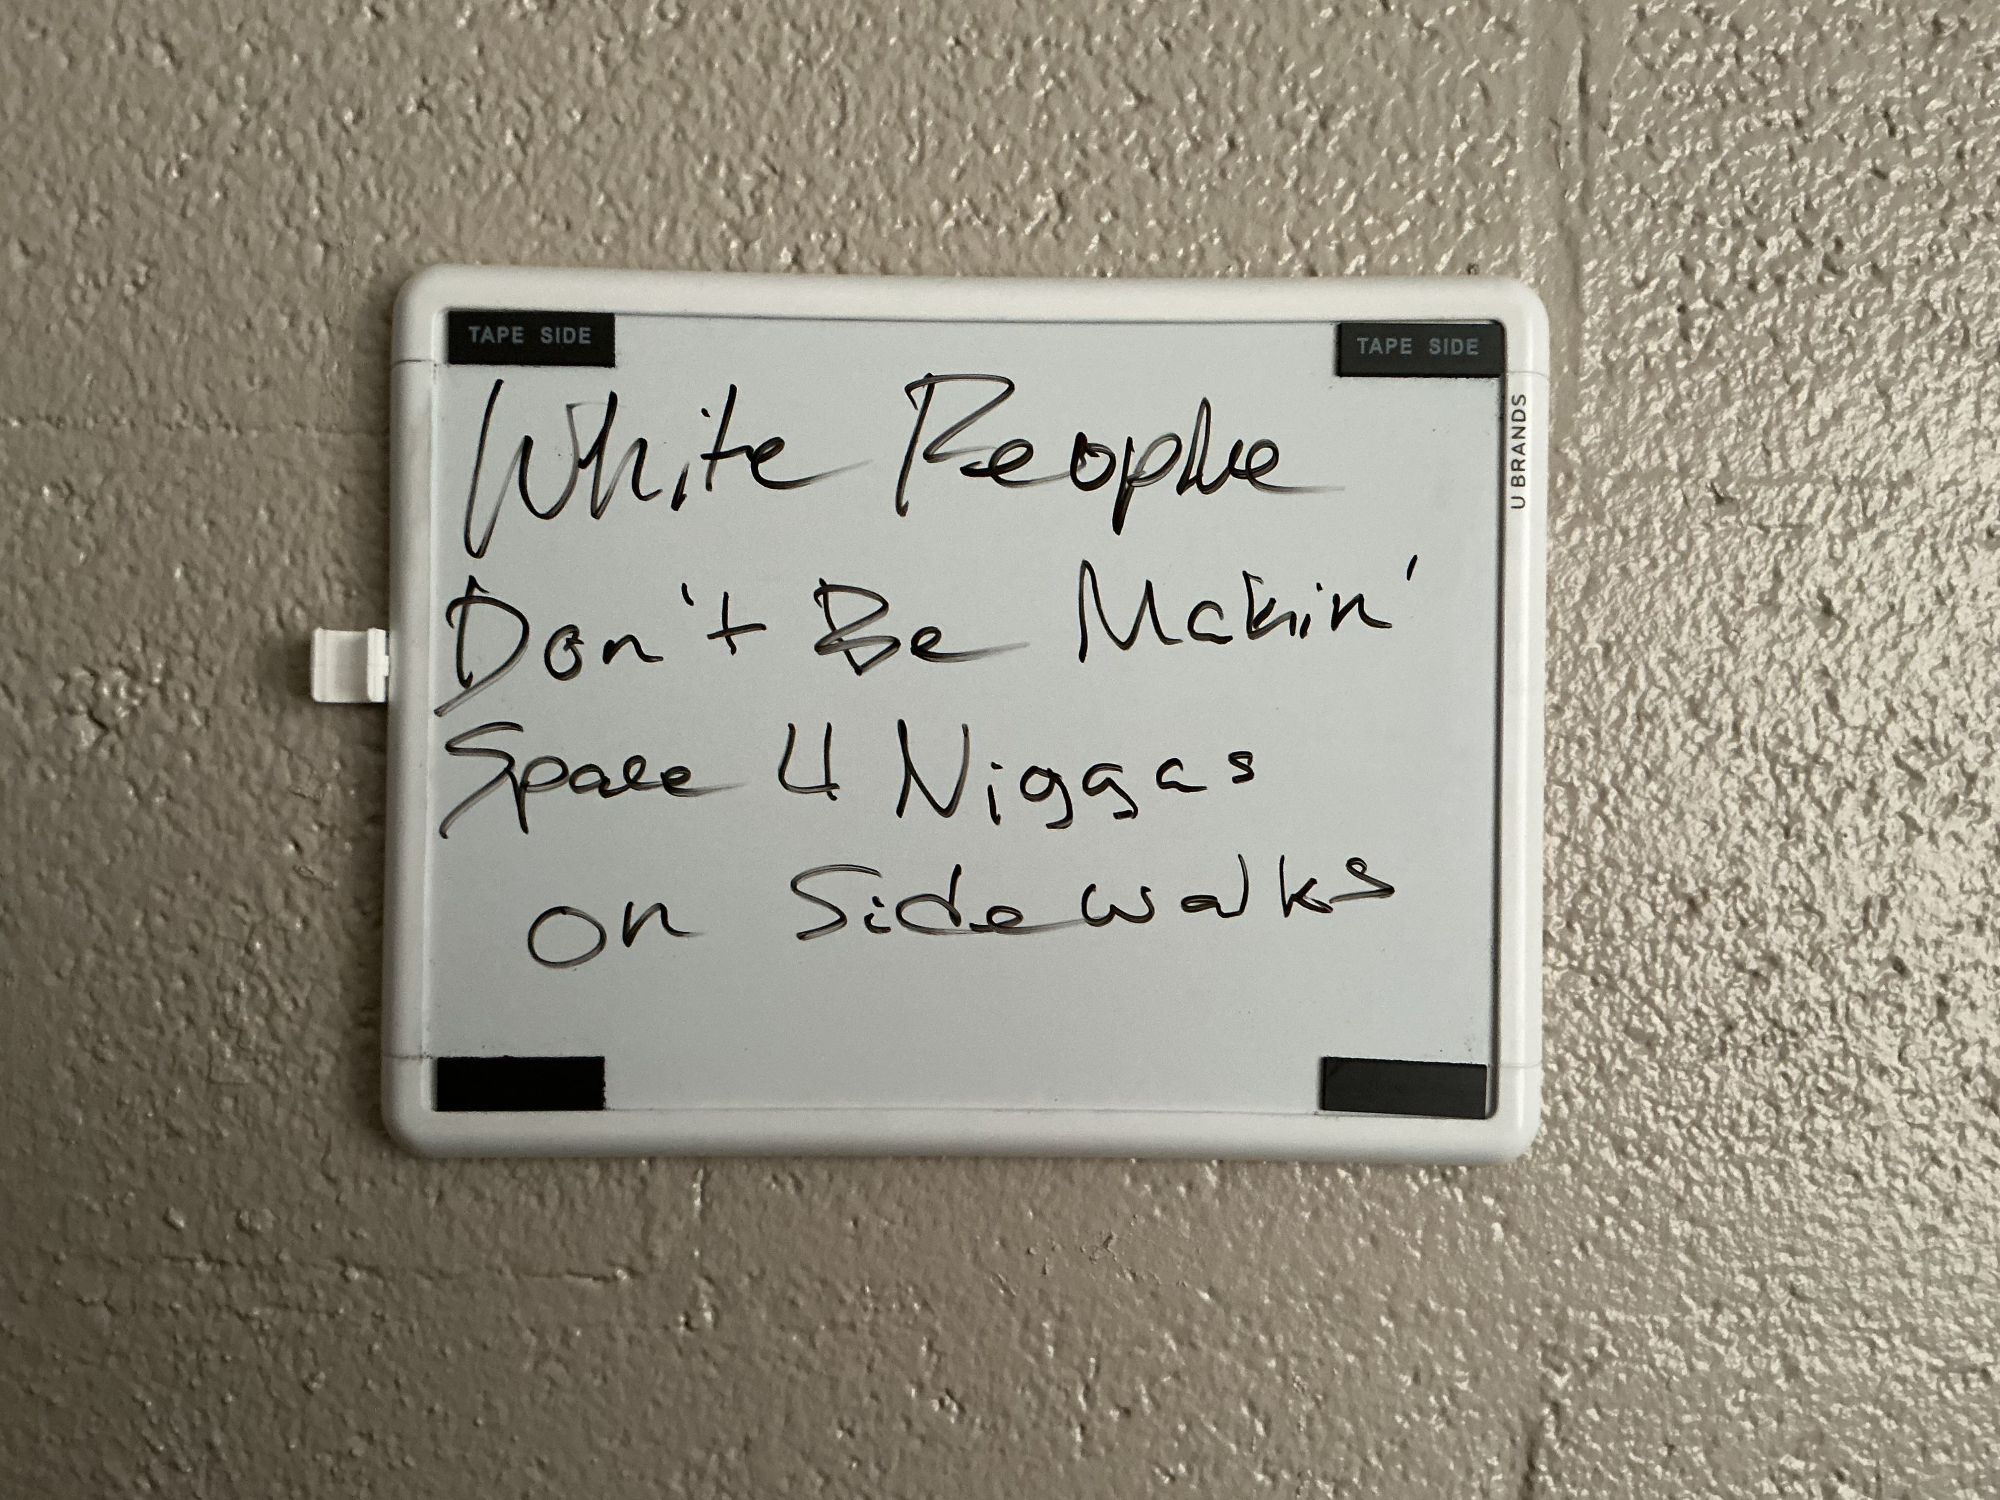 TAPE SIDE
TAPE SIDE
U BRANDS
White People
Don't Be Makin'
Space 4 Niggas
on Sidewalks